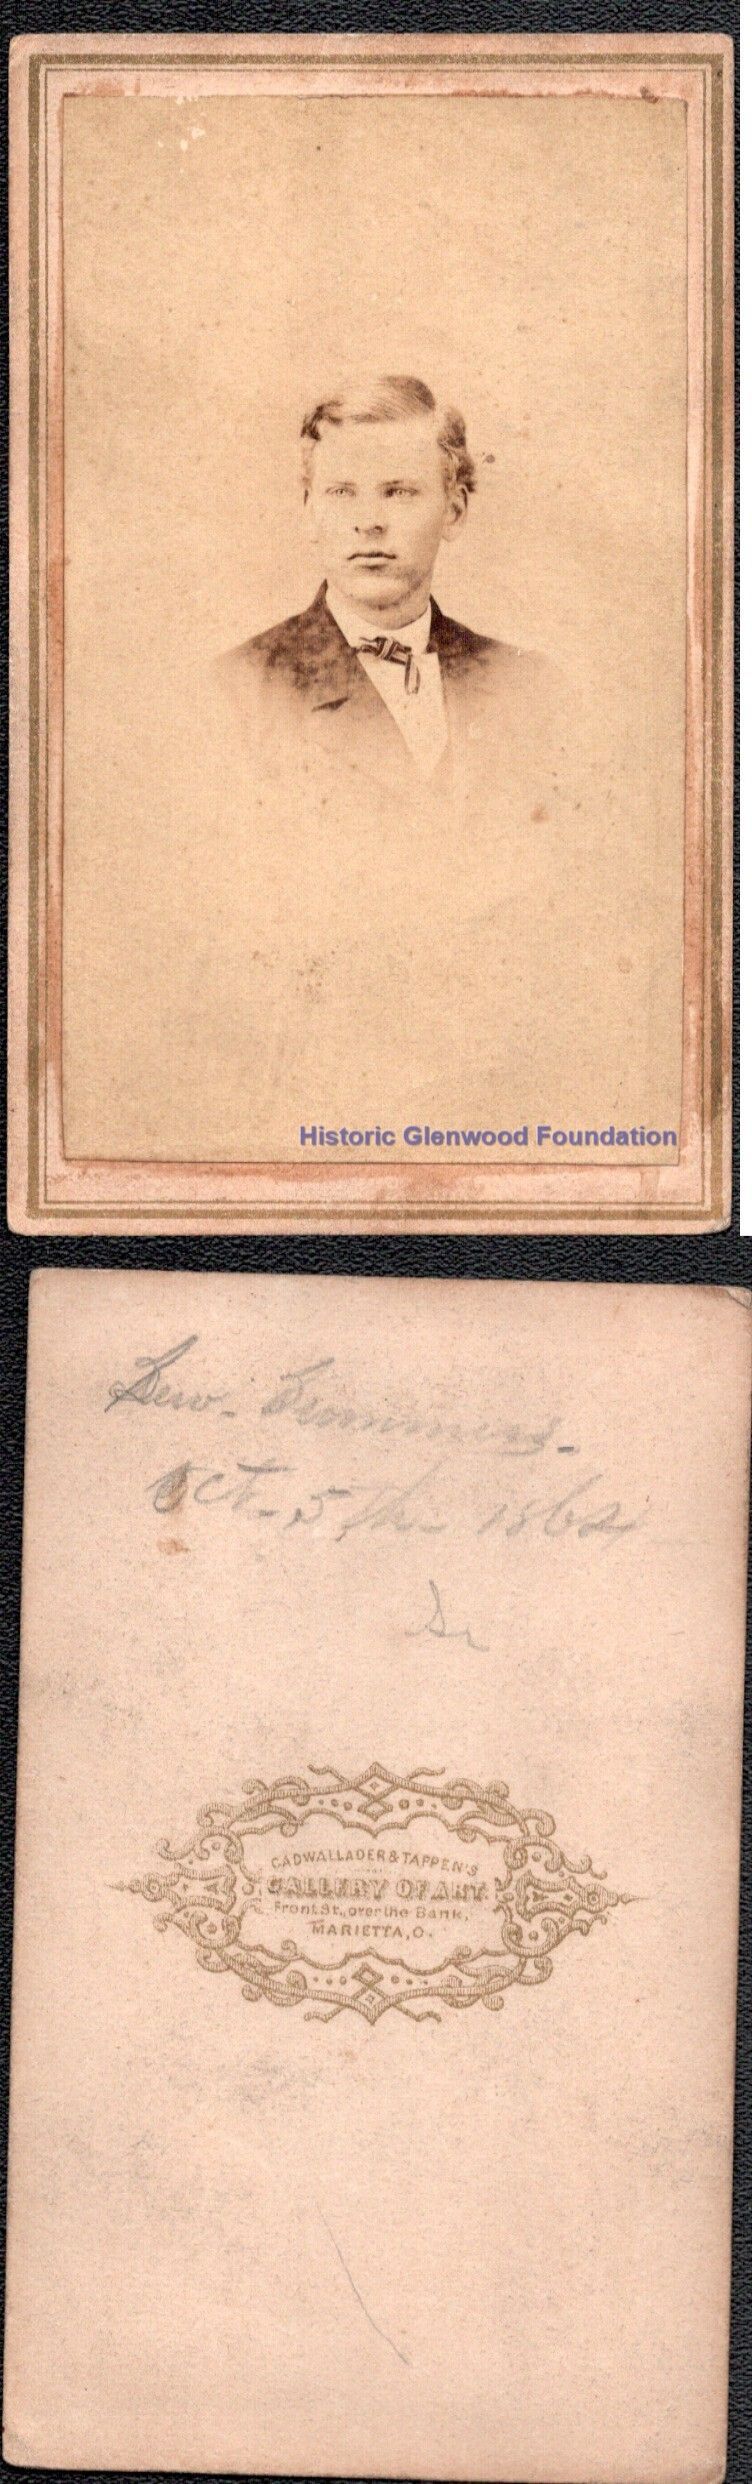 Historic Glenwood Foundation
Lew.
Oct. 5th. 1864
CADWALLADER & TAPPEN'S
GALLERY OF ART.
Front St., over the Bank,
MARIETTA, O.